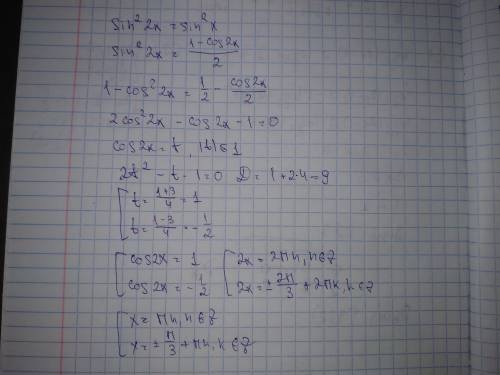 sin²2x = sin²x
sin²2x = (1-cos2x)/2
1-cos²2x = 1/2 - cos2x/2
2cos²2x - cos2x - 1 = 0
cos2x = t, |t| ≤ 1
2t² - t - 1 = 0 D = 1+2·4 = 9
[ t = (1+3)/4 = 1
t = (1-3)/4 = -1/2
[ cos2x = 1 [ 2x = 2πn, n∈Z
cos2x = -1/2 2x = ± 2π/3 + 2πk, k∈Z
[ x = πn, n∈Z
x = ± π/3 + πk, k∈Z